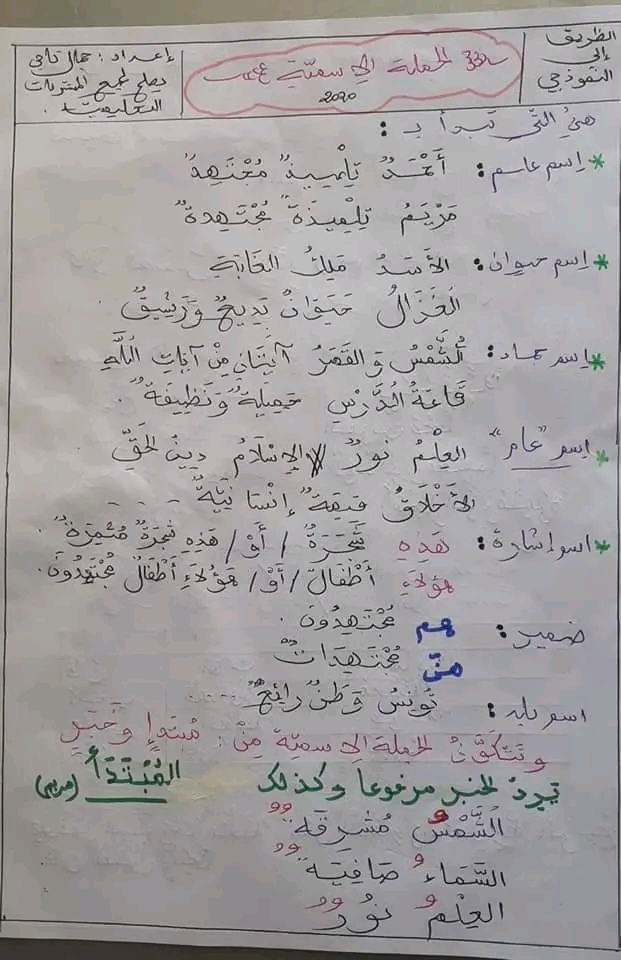 الطريق
إلى
النموذجي
الجملة الإسمية
2020
إعداد: جمال تاجي
يصلح لجميع المستويات
التعليمية.
هي التي تبدأ بـ:
* إسم عاسم: أَحْمَدُ تِلْمِيذٌ مُجْتَهِدٌ
مَرْيَمُ تِلْمِيذَةٌ مُجْتَهِدَةٌ
* إسم حيوان: الأَسَدُ مَلِكُ الغَابَةِ
الغَزَالُ حَيَوَانٌ بَدِيعٌ وَرَشِيقٌ
* إسم جماد: الشَّمْسُ وَالقَمَرُ آيَتَانِ مِنْ آيَاتِ اللَّهِ
قَاعَةُ الدَّرْسِ جَمِيلَةٌ وَنَظِيفَةٌ.
* اسم "عام" العِلْمُ نُورٌ // الإِسْلَامُ دِينُ الحَقِّ
الأَخْلَاقُ قِيمَةٌ إِنْسَانِيَّةٌ - - -
* اسم إشارة: هَذِهِ شَجَرَةٌ / أَوْ / هَذِهِ شَجَرَةٌ مُثْمِرَةٌ.
هَؤُلَاءِ أَطْفَالٌ / أَوْ / هَؤُلَاءِ أَطْفَالٌ مُجْتَهِدُونَ.
ضمير: هم مُجْتَهِدُونَ.
هنّ مُجْتَهِدَاتٌ
اسم بلد: تُونِسُ وَطَنٌ رَائِعٌ ....
وَتَتَكَوَّنُ الجملة الإسميّة مِنْ: مُبْتَدَإٍ وَخَبَرٍ
يَرِدُ الخبر مرفوعا وكذلك المُبْتَدَأُ
الشَّمْسُ مُشْرِقَةٌ
السَّمَاءُ صَافِيَةٌ
العِلْمُ نُورٌ